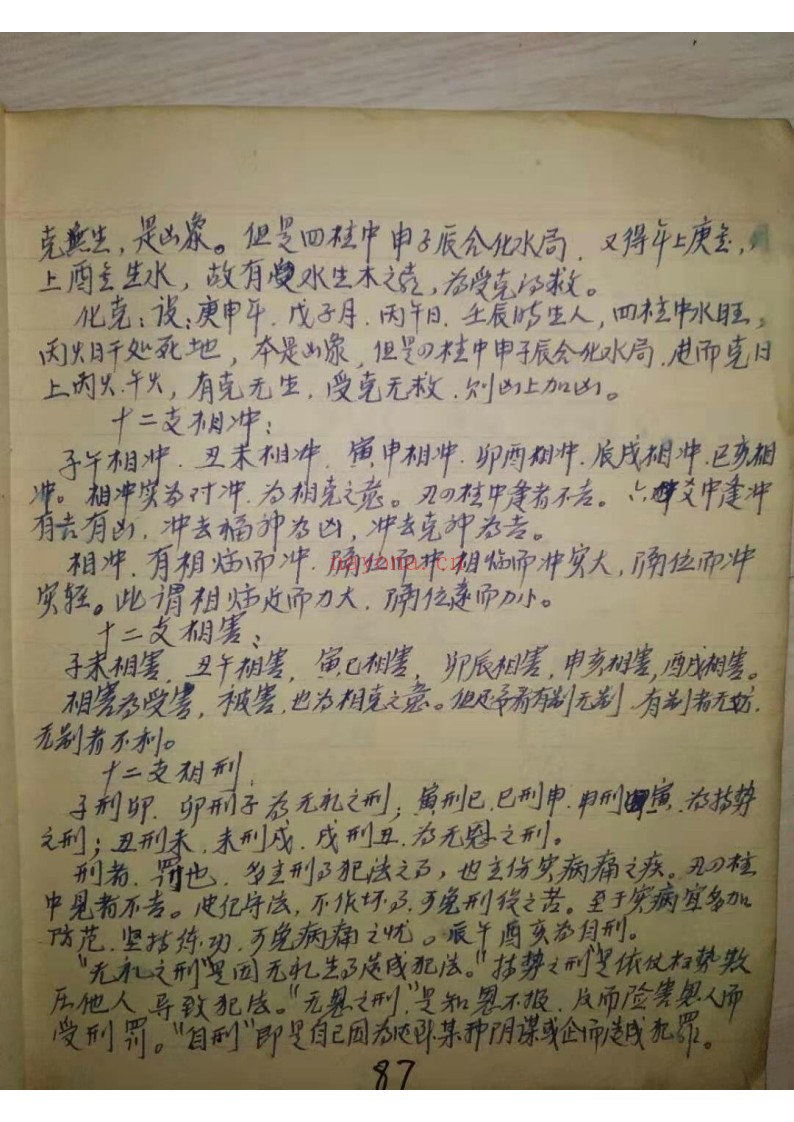 克無生，是凶象。但是四柱中申子辰合化水局，又得年上庚金，
上酉金生水，故有水生木之意，为受克得救。
化克：设：庚申年．戊子月．丙午日．壬辰时生人，四柱中水旺，
丙火日干处死地，本是凶象，但是四柱中申子辰合化水局，进而克日
上丙火．午火，有克无生．受克无救．则凶上加凶。
十二支相冲：
子午相冲．丑未相冲．寅申相冲．卯酉相冲．辰戌相冲．巳亥相
冲。相冲实为对冲．为相克之意。凡四柱中逢者不吉。六爻中逢冲
有吉有凶，冲去福神为凶，冲去克神为吉。
nayona.cn
相冲．有相临而冲．隔位而冲．相临而冲灾大，隔位而冲
灾轻。此谓相临近而力大．隔位远而力小。
十二支相害：
子未相害．丑午相害，寅巳相害，卯辰相害，申亥相害，酉戌相害。
相害为受害，被害，也为相克之意。但还要看有制无制．有制者无妨，
无制者不利。
十二支相刑．
子刑卯．卯刑子为无礼之刑；寅刑巳．巳刑申．申刑寅．为持势
之刑；丑刑未．未刑戌．戌刑丑．为无恩之刑。
刑者．罚也．多主刑事犯法之事，也主伤灾病痛之疾。凡四柱
中见者不吉。遵纪守法，不作坏事．可免刑役之苦。至于灾病宜多加
防范．坚持练功．可免病痛之忧。辰午酉亥为自刑。
“无礼之刑”是因无礼生事造成犯法。“持势之刑”是依仗权势欺
压他人导致犯法。“无恩之刑”是知恩不报．反而险害恩人而
受刑罚。“自刑”即是自己因为某种阴谋或企而造成犯罪。
87